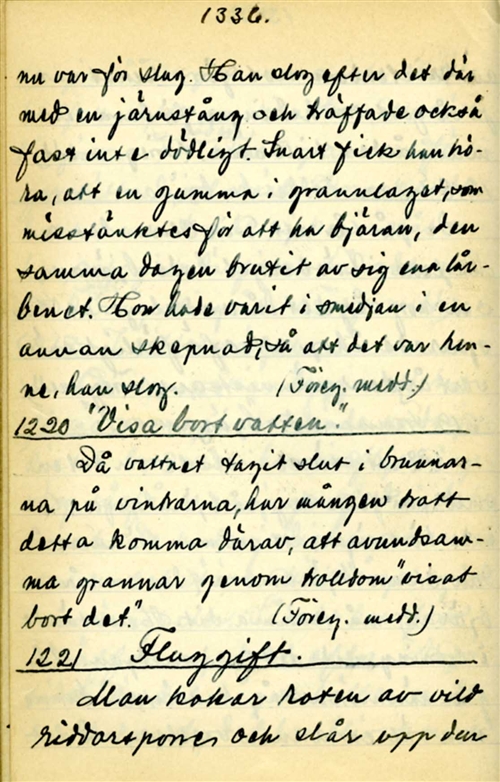 1336.
nu var för slug. Han slog efter det där
med en järnstång och träffade också
fast inte dödligt. Snart fick han hö-
ra, att en gumma i grannlaget, som
misstänktes för att ha bjäran, den
samma dagen brutit av sig ena lår-
benet. Hon hade varit i smedjan i en
annan skepnad, så att det var hen-
ne, han slog. (Föreg. medd.)
1220 "Visa bort vatten."
Då vattnet tagit slut i brunnar-
na på vintrarna, har mången trott
detta komma därav, att avundsam-
ma grannar genom trolldom "visat
bort det." (Föreg. medd.)
1221 Fluggift.
Man kokar roten av vild
riddarsporre och slår upp den